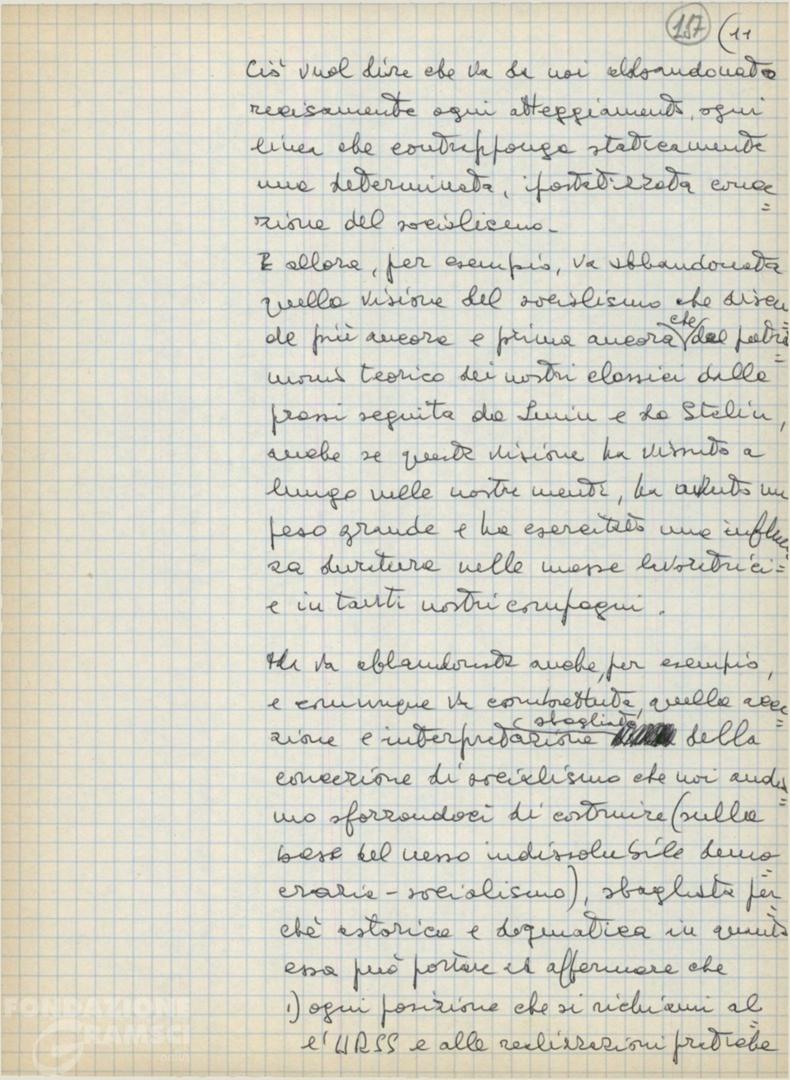 157 (11
Ciò vuol dire che va da noi abbandonato
recisamente ogni atteggiamento, ogni
linea che contrapponga staticamente
una determinata, ipostatizzata conce=
zione del socialismo.
E allora, per esempio, va abbandonata
quella visione del socialismo che discen=
de più ancora e prima ancora che dal patri=
monio teorico dei nostri classici dalla
prassi seguita da Lenin e da Stalin,
anche se questa visione ha vissuto a
lungo nelle nostre menti, ha avuto un
peso grande e ha esercitato una influen
za duratura nelle masse lavoratrici=
e in tanti nostri compagni.
Ma va abbandonata anche, per esempio,
e comunque va combattuta, quella acce=
zione e interpretazione (sbagliata) della
concezione di socialismo che noi andia=
mo sforzandoci di costruire (sulla
base del nesso indissolubile demo=
crazia-socialismo), sbagliata per=
chè astorica e dogmatica in quanto
essa può portare ad affermare che
1) ogni posizione che si richiami al
l'URSS e alle realizzazioni pratiche
FONDAZIONE
GRAMSCI